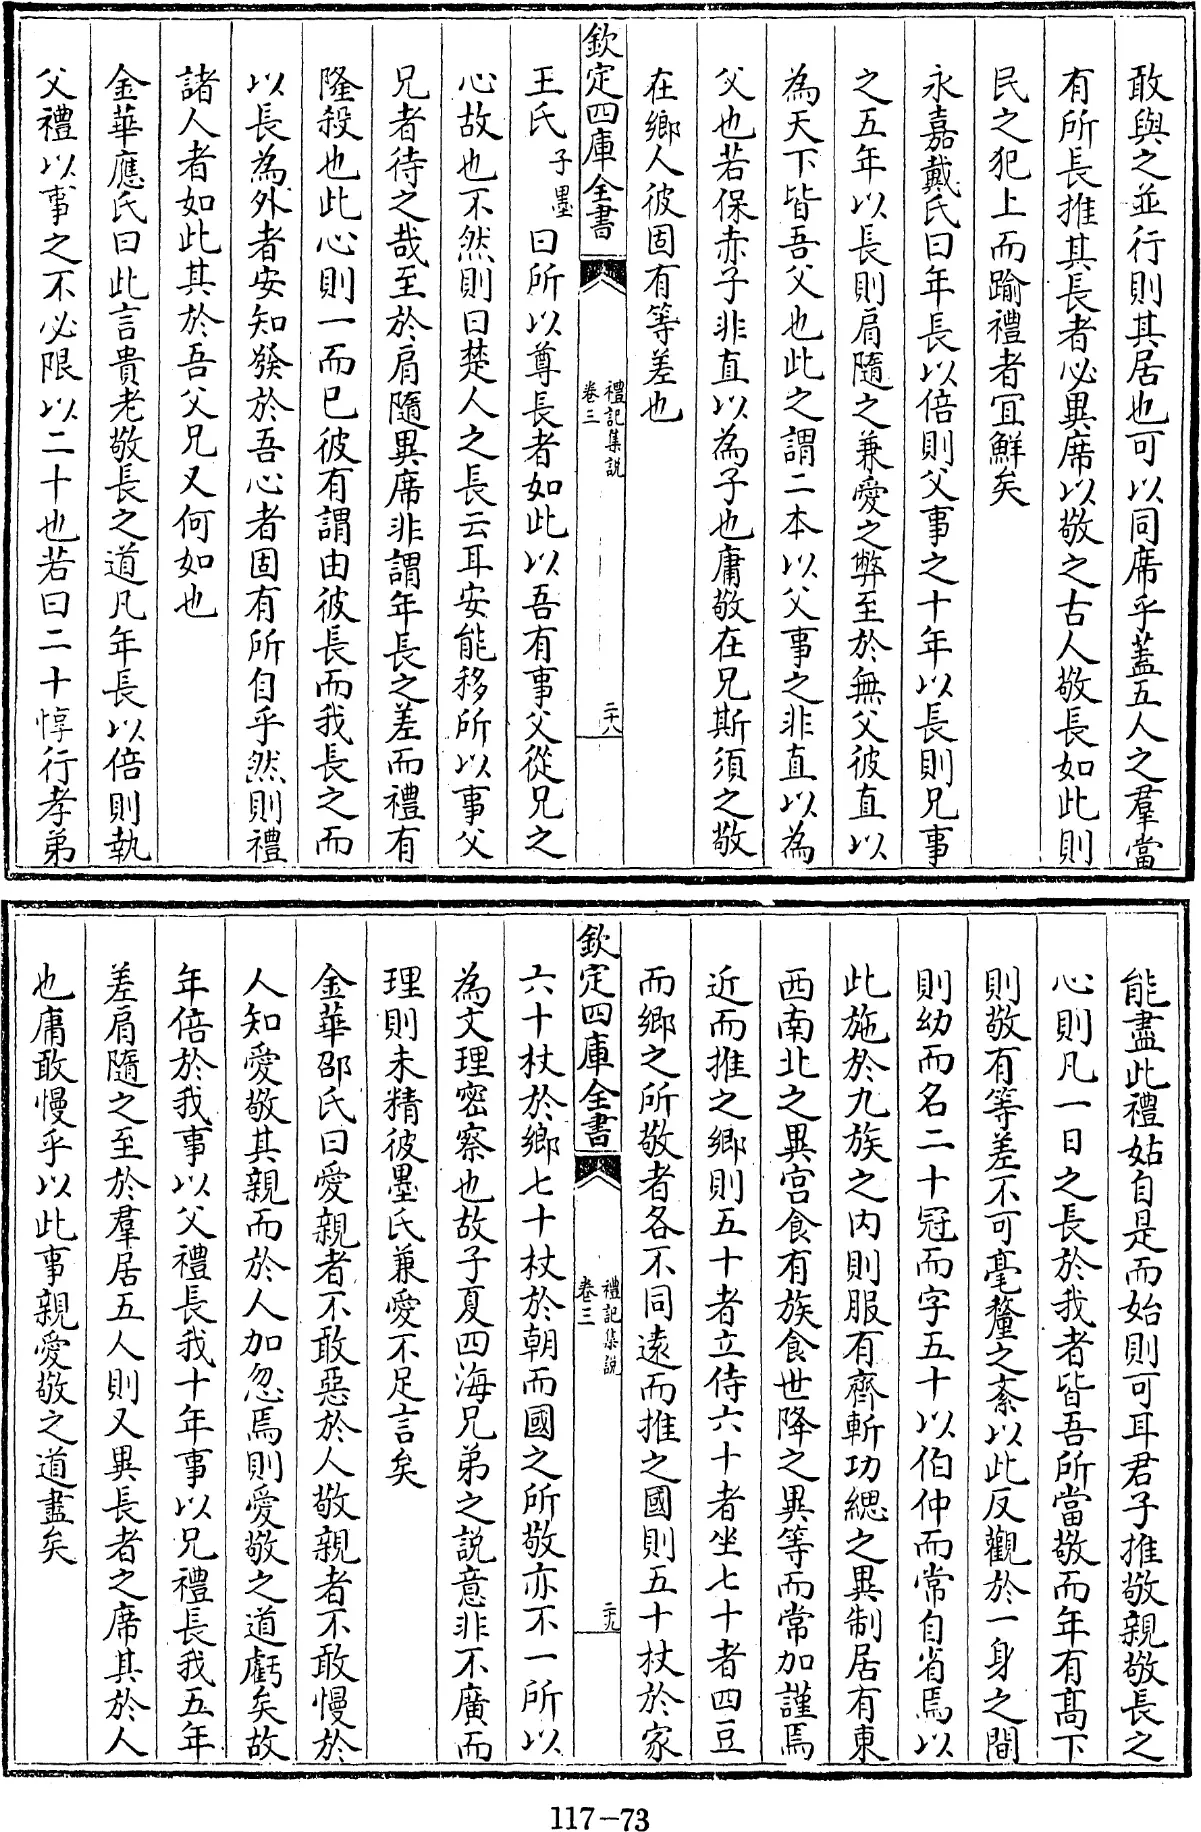 敢與之並行則其居也可以同席乎葢五人之羣當
有所長推其長者必異席以敬之古人敬長如此則
民之犯上而踰禮者宜鮮矣
永嘉戴氏曰年長以倍則父事之十年以長則兄事
之五年以長則肩隨之兼愛之弊至於無父彼直以
為天下皆吾父也此之謂二本以父事之非直以為
父也若保赤子非直以為子也庸敬在兄斯須之敬
在鄉人彼固有等差也
欽定四庫全書
禮記集説
卷三
二十八
王氏子墨曰所以尊長者如此以吾有事父從兄之
心故也不然則曰楚人之長云耳安能移所以事父
兄者待之哉至於肩隨異席非謂年長之差而禮有
隆殺也此心則一而已彼有謂由彼長而我長之而
以長為外者安知發於吾心者固有所自乎然則禮
諸人者如此其於吾父兄又何如也
金華應氏曰此言貴老敬長之道凡年長以倍則執
父禮以事之不必限以二十也若曰二十惇行孝弟
能盡此禮姑自是而始則可耳君子推敬親敬長之
心則凡一日之長於我者皆吾所當敬而年有髙下
則敬有等差不可毫釐之紊以此反觀於一身之間
則幼而名二十冠而字五十以伯仲而常自省焉以
此施於九族之内則服有齊斬功緦之異制居有東
西南北之異宫食有族食世降之異等而常加謹焉
近而推之鄉則五十者立侍六十者坐七十者四豆
而鄉之所敬者各不同遠而推之國則五十杖於家
欽定四庫全書
禮記集説
卷三
二十九
六十杖於鄉七十杖於朝而國之所敬亦不一所以
為文理密察也故子夏四海兄弟之説意非不廣而
理則未精彼墨氏兼愛不足言矣
金華邵氏曰愛親者不敢惡於人敬親者不敢慢於
人知愛敬其親而於人加忽焉則愛敬之道虧矣故
年倍於我事以父禮長我十年事以兄禮長我五年
差肩隨之至於羣居五人則又異長者之席其於人
也庸敢慢乎以此事親愛敬之道盡矣
117-73